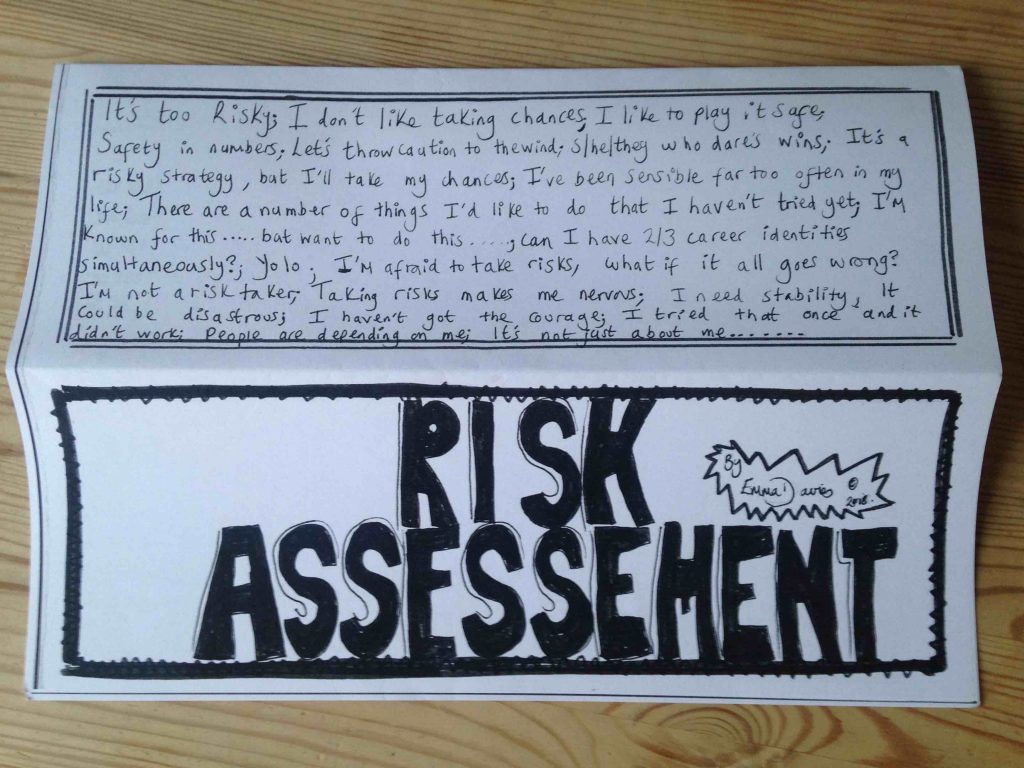 It's too Risky; I don't like taking chances; I like to play it safe;
Safety in numbers; Let's throw caution to the wind; s/he/they who dares wins; It's a
risky strategy, but I'll take my chances; I've been sensible far too often in my
life; There are a number of things I'd like to do that I haven't tried yet; I'm
known for this..... but want to do this.....; can I have 2/3 career identities
simultaneously?; Yolo; I'm afraid to take risks, what if it all goes wrong?
I'm not a risk taker; Taking risks makes me nervous; I need stability, It
could be disastrous; I haven't got the courage; I tried that once and it
didn't work; People are depending on me; It's not just about me.......
RISK
By
Emma Davies © 2018.
ASSESSEMENT